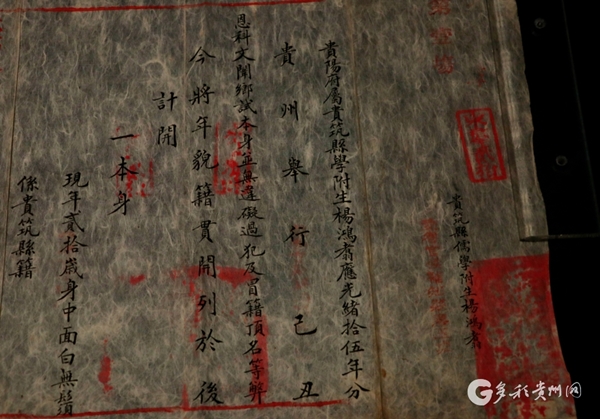 貴筑縣儒學附生楊鴻翥
貴陽府屬貴筑縣學附生楊鴻翥應光緒拾伍年分
貴州舉行己丑
恩科文闈鄉試本身並無違礙過犯及冒籍頂名等弊
今將年貌籍貫開列於後
計開
一本身
現年貳拾歲身中面白無鬚
係貴筑縣籍
多彩贵州网